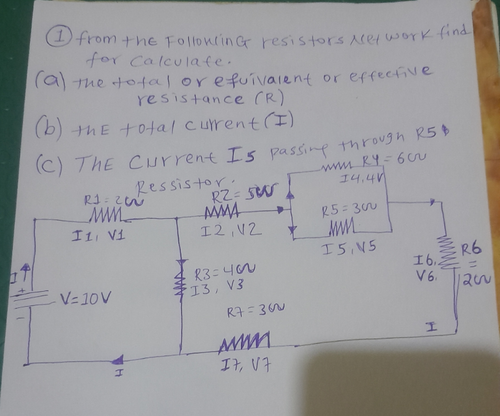 ① from the Following resistors Network find
for Calculate.
(a) the total or equivalent or effective
resistance (R)
(b) the total current (I)
(c) The Current I5 passing through R5
Ressistor.
R4 = 6Ω
I4.4V
R1 = 2Ω
I1, V1
R2 = 5Ω
I2, V2
R5 = 3Ω
I5, V5
I
+
-
V = 10V
R3 = 4Ω
I3, V3
I6,
V6.
R6
=
2Ω
R7 = 3Ω
I7, V7
I
I